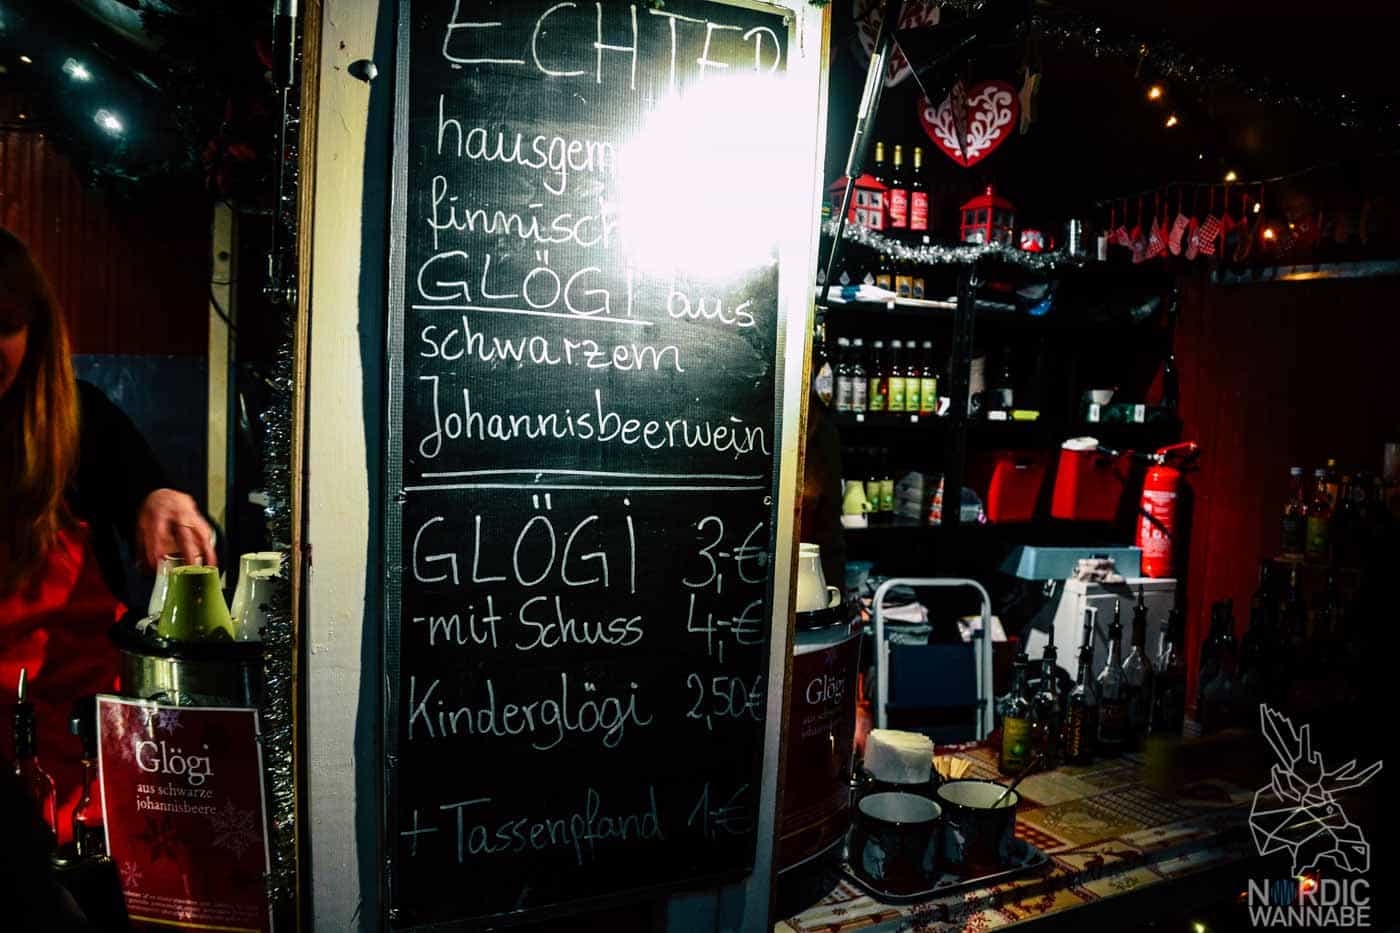 ECHTER
hausgem
finnisch
GLÖGI aus
schwarzem
Johannisbeerwein
GLÖGI 3,-€
-mit Schuss 4,-€
Kinderglögi 2,50€
+ Tassenpfand 1,-€
Glögi
aus schwarze
johannisbeere
Glögi
aus schwarze
Glögi
NORDIC
WANNABE